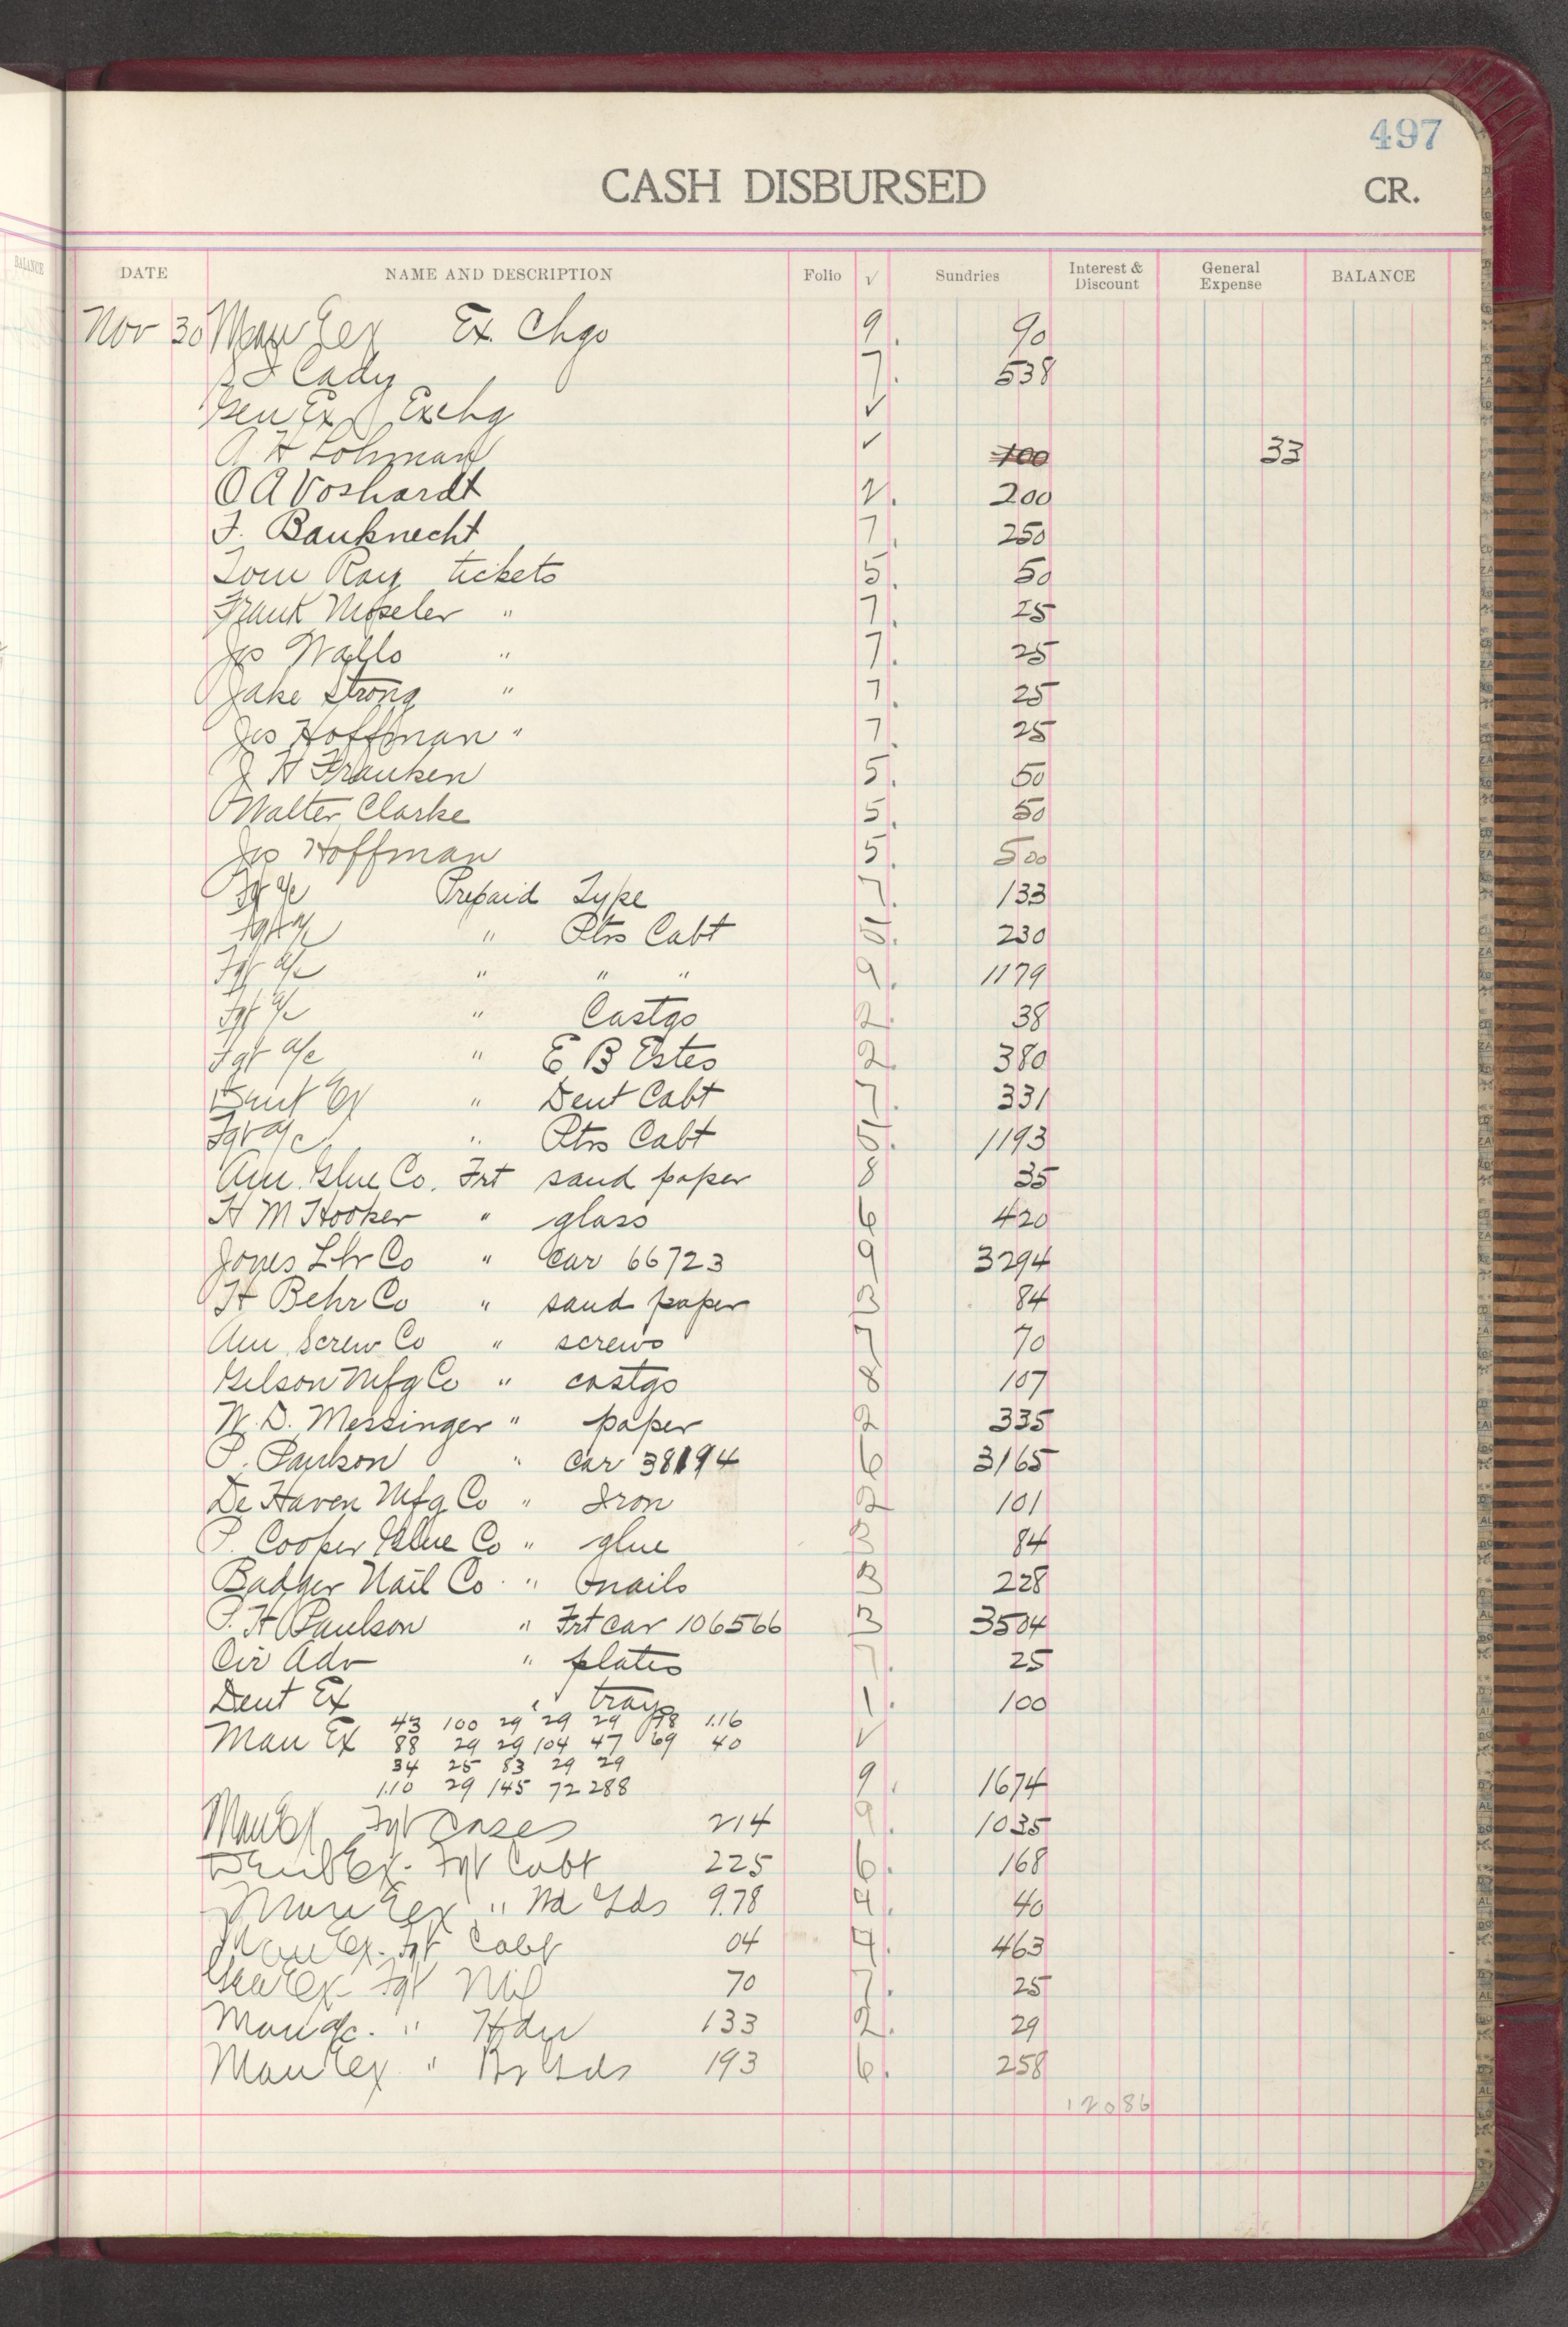 497
CASH DISBURSED CR.
BALANCE
DATE NAME AND DESCRIPTION Folio √ Sundries Interest & Discount General Expense BALANCE
Nov 30 Man Ex Ex. Chgo 9. 90
Cady 7. 538
Gen Ex Exchg ✓
A H Lohman ✓ 100 33
O A Voshardt 2. 200
F. Bauknecht 7. 250
Tom Ray tickets 5. 50
Frank Moseler " 7. 25
Jos Wallo " 7. 25
Jake Strong " 7. 25
Jos Hoffman " 7. 25
J H Franken 5. 50
Walter Clarke 5. 50
Jos Hoffman 5. 500
Fgt a/c Prepaid Type 7. 133
Fgt a/c " Ptrs Cabt 5. 230
Fgt a/c " " " 9. 1179
Fgt a/c " Castgs 2. 38
Fgt a/c " E B Estes 2. 380
Dent Ex " Dent Cabt 7. 331
Fgt a/c " Ptrs Cabt 5. 1193
Am. Glue Co. Frt sand paper 8 35
H M Hooker " glass 6 420
Jones Lbr Co " Car 66723 9 3294
H Behr Co " sand paper 3 84
Am Screw Co " screws 7 70
Gilson Mfg Co " castgs 8 107
W. D. Messinger " paper 2 335
P. Paulson " Car 38194 6 3165
De Haven Mfg Co " Iron 2 101
P. Cooper Glue Co " glue 3 84
Badger Nail Co " nails 3 228
P. H Paulson " Frt car 106566 3 3504
Cir Adv " plates 7. 25
Dent Ex " trays 1. 100
43 100 29 29 29 98 1.16
Man Ex 88 29 29 104 47 69 40 ✓
34 25 83 29 29
1.10 29 145 72 288 9. 1674
Man Ex Fgt Cases 214 9. 1035
Dent Ex. Fgt Cabt 225 6. 168
Man Ex " Wd Gds 9.78 4. 40
Man Ex. Fgt Cabt 04 4. 463
Gen Ex Fgt 70 7. 25
Man a/c. " Hdw 133 2. 29
Man Ex " Br Gds 193 6. 258
12086